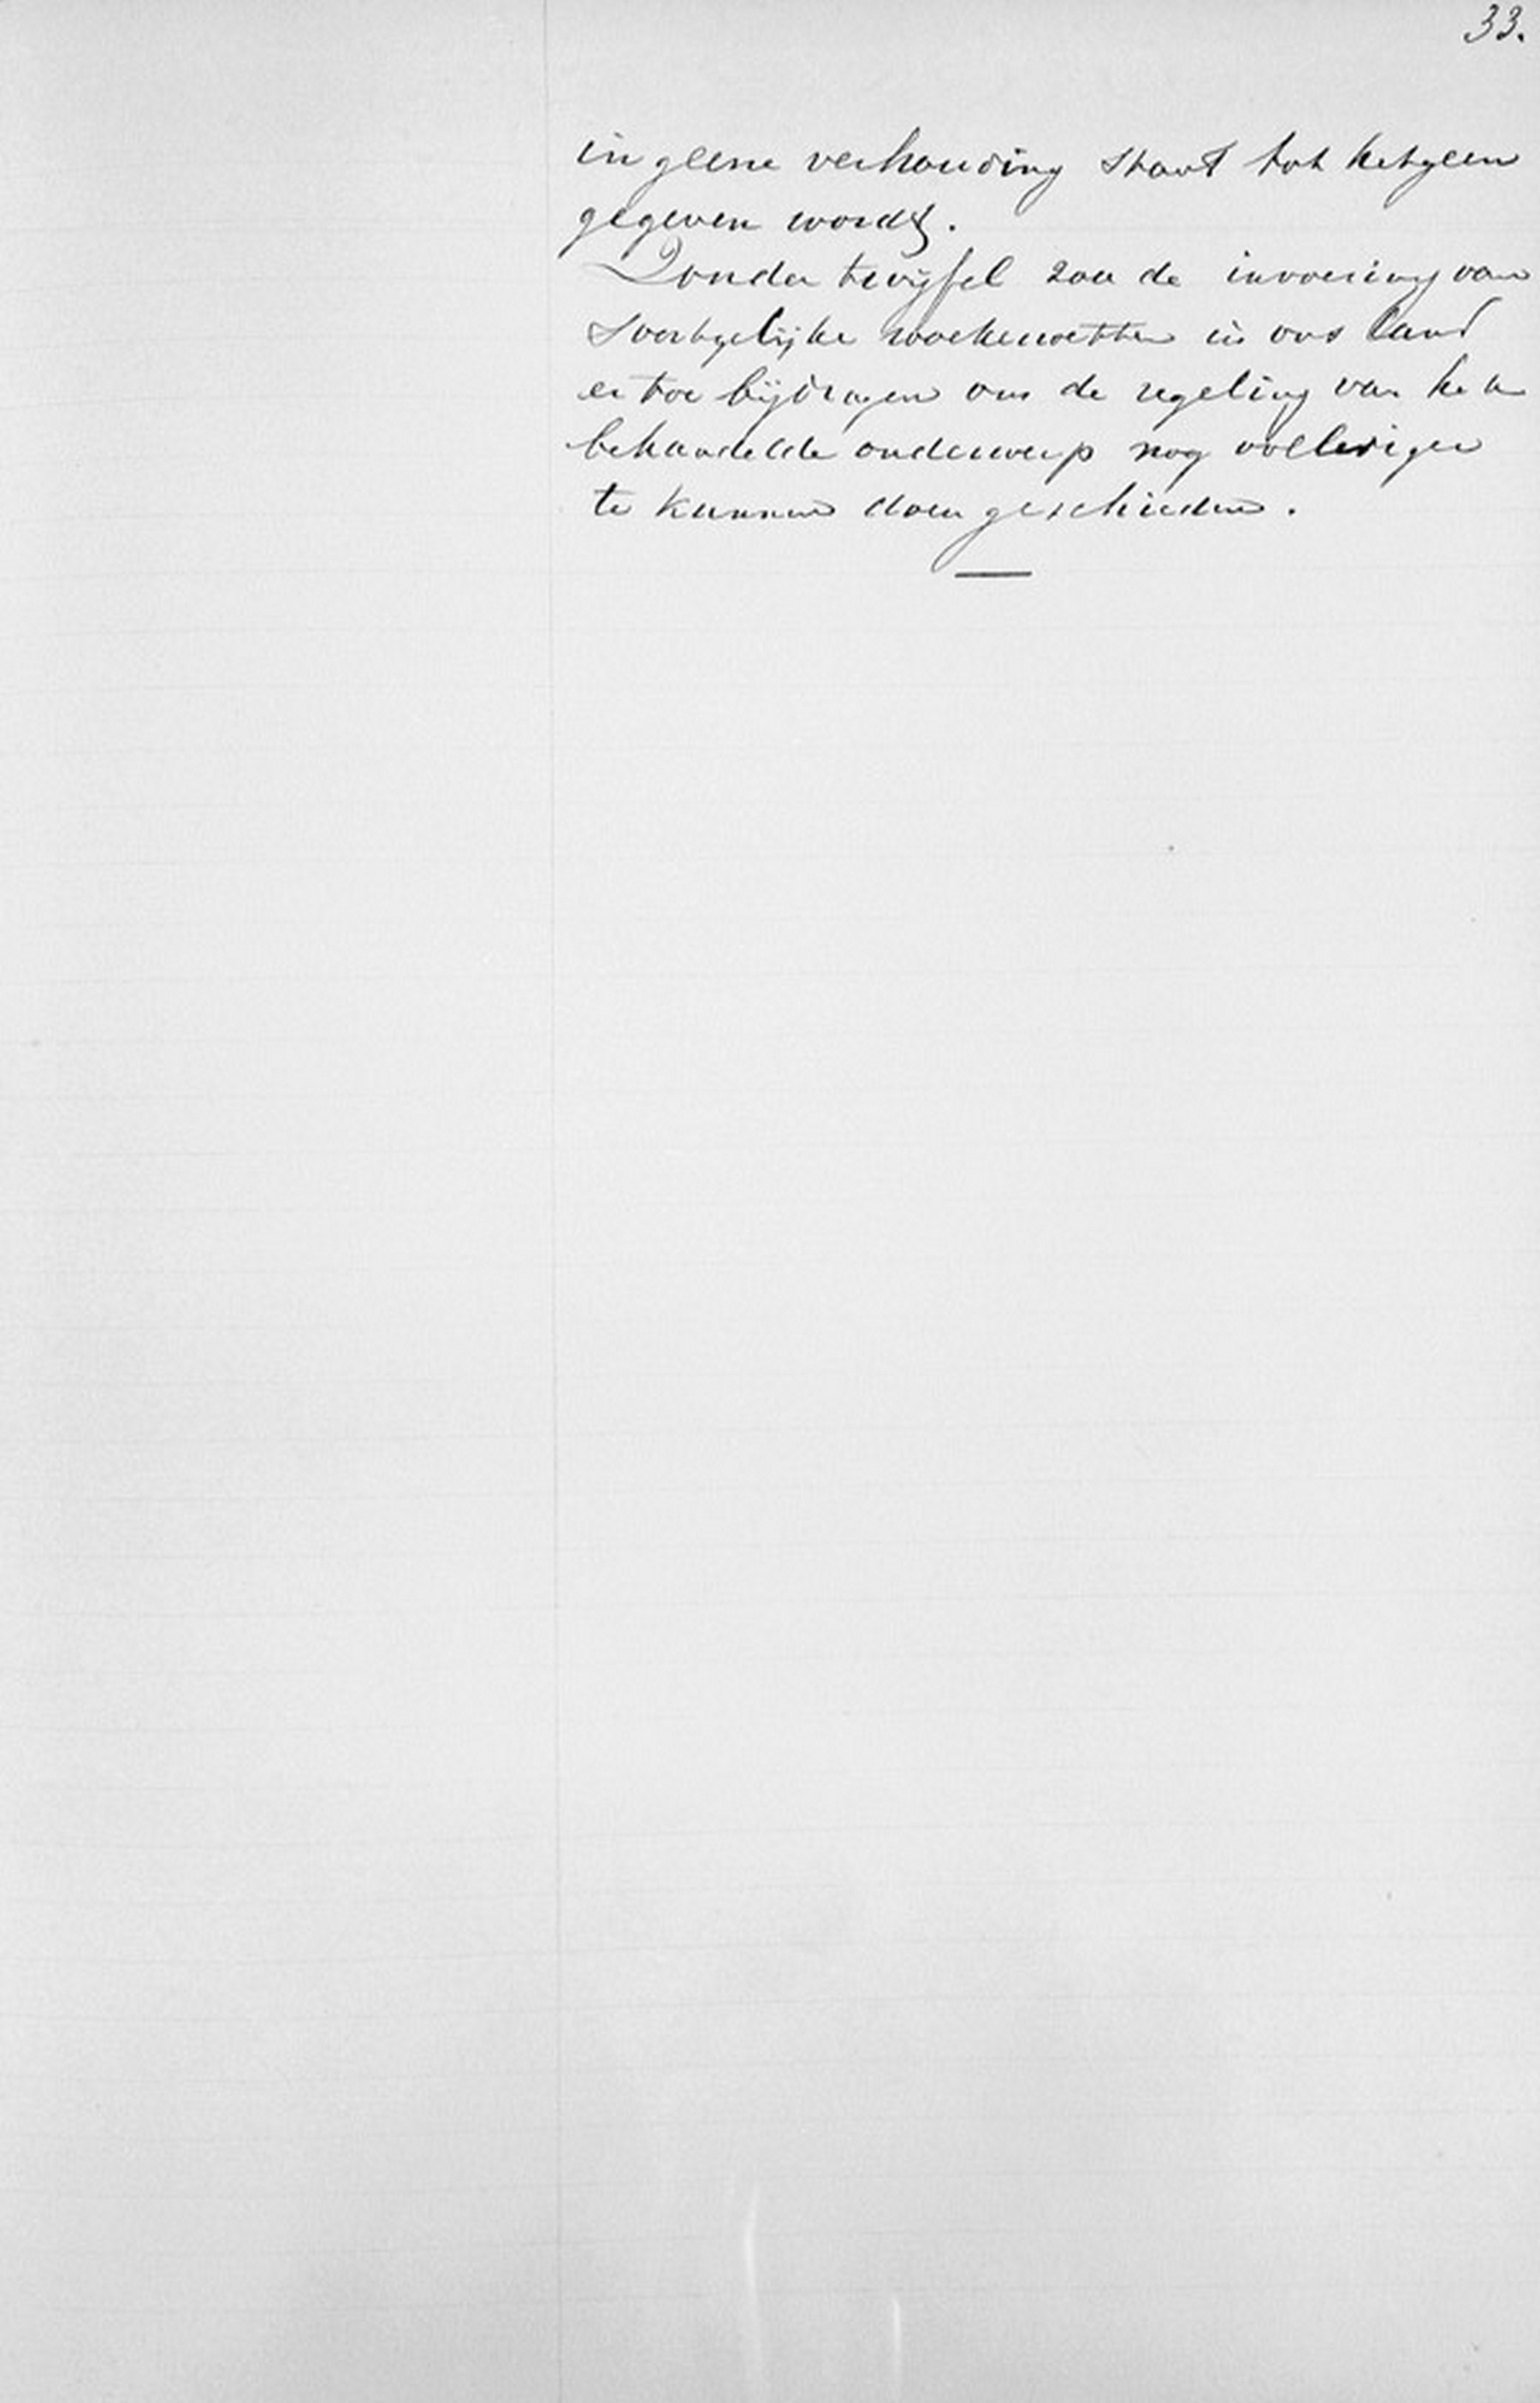 33.
in geene verhouding staat tot hetgeen
gegeven wordt.
Zonder twijfel zou de invoering van
soortgelijke woekerwetten in ons land
er toe bijdragen om de regeling van het
behandelde onderwerp nog vollediger
te kunnen doen geschieden.